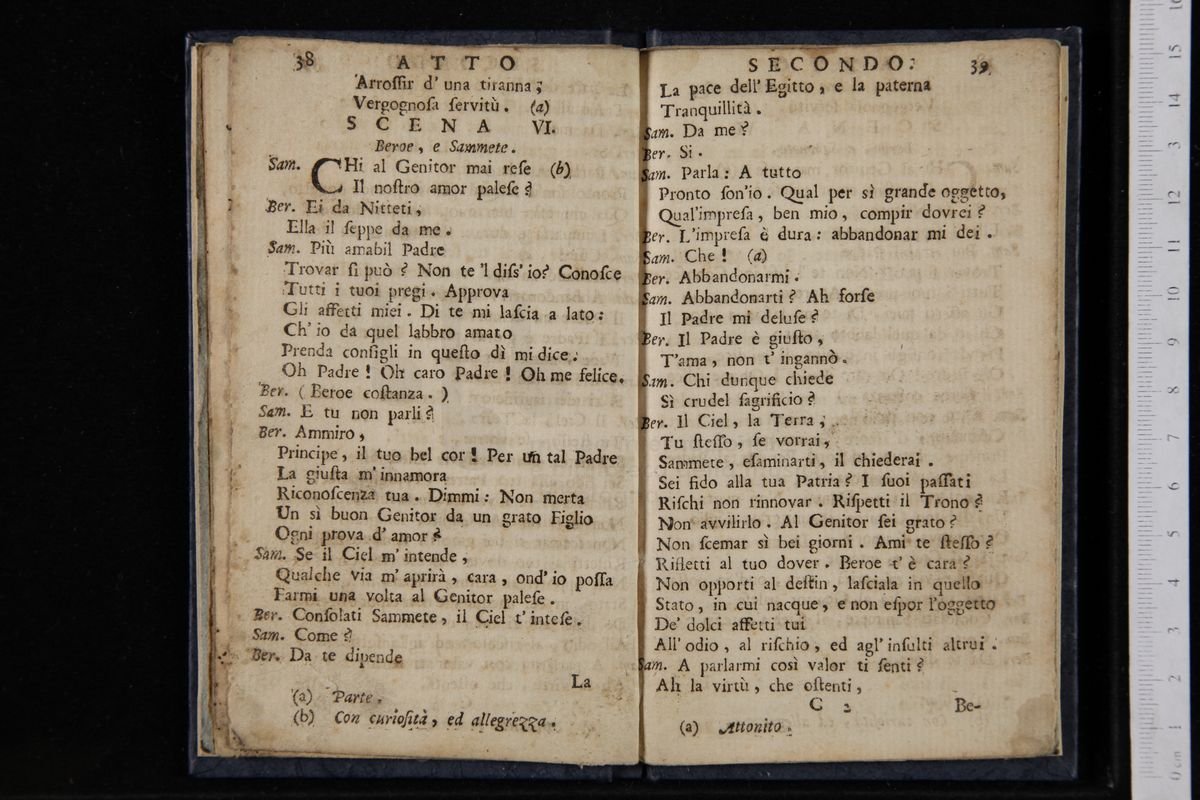 38 ATTO
Arroſſir d' una tiranna;
Vergognoſa ſervitù. (a)
SCENA VI.
Beroe, e Sammete.
Sam. CHi al Genitor mai reſe (b)
Il noſtro amor paleſe?
Ber. Ei da Nitteti,
Ella il ſeppe da me.
Sam. Più amabil Padre
Trovar ſi può? Non te 'l diſs' io? Conoſce
Tutti i tuoi pregi. Approva
Gli affetti miei. Di te mi laſcia a lato:
Ch' io da quel labbro amato
Prenda conſigli in queſto dì mi dice.
Oh Padre! Oh caro Padre! Oh me felice.
Ber. (Beroe coſtanza.)
Sam. E tu non parli?
Ber. Ammiro,
Principe, il tuo bel cor! Per un tal Padre
La giuſta m' innamora
Riconoſcenza tua. Dimmi: Non merta
Un sì buon Genitor da un grato Figlio
Ogni prova d' amor?
Sam. Se il Ciel m' intende,
Qualche via m' aprirà, cara, ond' io poſſa
Farmi una volta al Genitor paleſe.
Ber. Conſolati Sammete, il Ciel t' inteſe.
Sam. Come?
Ber. Da te dipende
La
(a) Parte.
(b) Con curioſità, ed allegrezza.
SECONDO. 39
La pace dell' Egitto, e la paterna
Tranquillità.
Sam. Da me?
Ber. Si.
Sam. Parla: A tutto
Pronto ſon'io. Qual per sì grande oggetto,
Qual'impreſa, ben mio, compir dovrei?
Ber. L'impreſa è dura: abbandonar mi dei.
Sam. Che! (a)
Ber. Abbandonarmi.
Sam. Abbandonarti? Ah forſe
Il Padre mi deluſe?
Ber. Il Padre è giuſto,
T'ama, non t' ingannò.
Sam. Chi dunque chiede
Sì crudel ſagrificio?
Ber. Il Ciel, la Terra;
Tu ſteſſo, ſe vorrai,
Sammete, eſaminarti, il chiederai.
Sei fido alla tua Patria? I ſuoi paſſati
Riſchi non rinnovar. Riſpetti il Trono?
Non avvilirlo. Al Genitor ſei grato?
Non ſcemar sì bei giorni. Ami te ſteſſo?
Rifletti al tuo dover. Beroe t' è cara?
Non opporti al deſtin, laſciala in quello
Stato, in cui nacque, e non eſpor l'oggetto
De' dolci affetti tui
All' odio, al riſchio, ed agl' inſulti altrui.
Sam. A parlarmi così valor ti ſenti?
Ah la virtù, che oſtenti,
C 2 Be-
(a) Attonito.